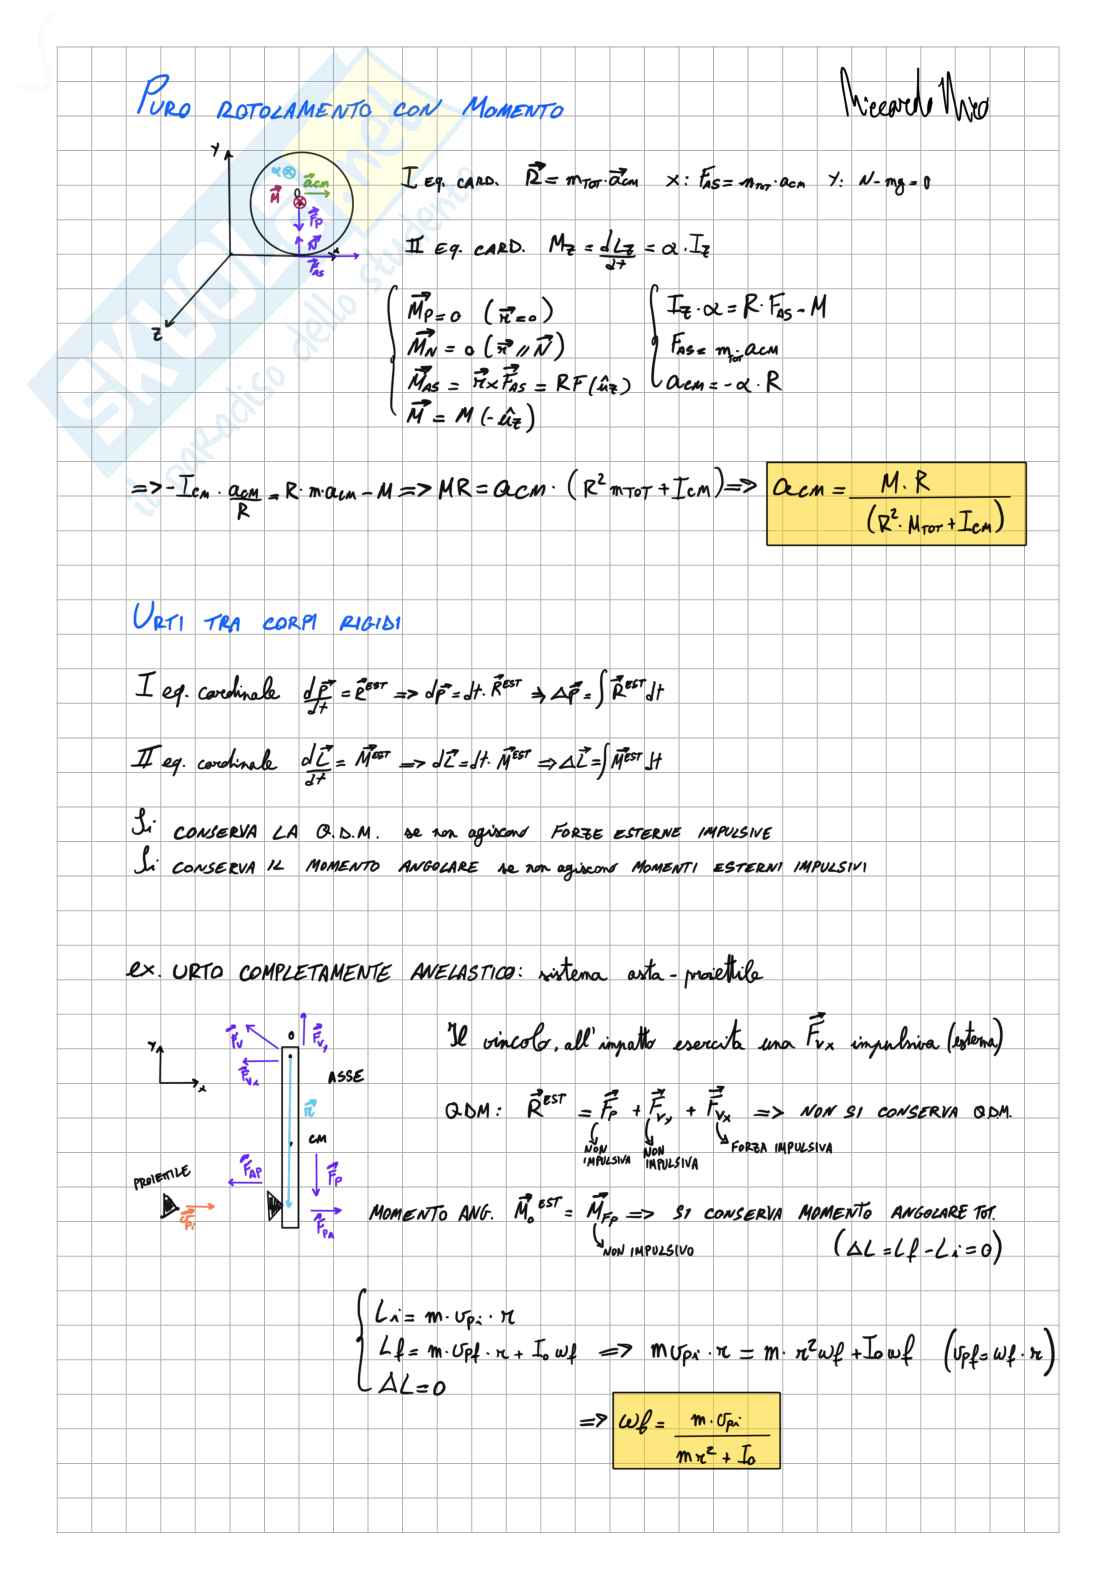 PURO ROTOLAMENTO CON MOMENTO
Riccardo Nico
SKUOLA.net
il paradiso dello studente
Y
α ⊗ a⃗cm
M⃗ O
F⃗p
N⃗ x
F⃗AS
Z
I EQ. CARD. R⃗ = mTOT · a⃗cm X: FAS = mTOT · acm Y: N - mg = 0
II EQ. CARD. MZ = dLZ/dt = α · IZ
M⃗P = 0 (r⃗ = 0)
M⃗N = 0 (r⃗ // N⃗)
M⃗AS = r⃗ × F⃗AS = RF(ûz)
M⃗ = M (-ûz)
IZ · α = R · FAS - M
FAS = mTOT · acm
acm = -α · R
=> -Icm · acm/R = R · m · acm - M => MR = acm · (R² mTOT + Icm) => acm = M · R / (R² · MTOT + Icm)
URTI TRA CORPI RIGIDI
I eq. cardinale dP⃗/dt = R⃗EST => dp⃗ = dt · R⃗EST => ΔP⃗ = ∫ R⃗EST dt
II eq. cardinale dL⃗/dt = M⃗EST => dL⃗ = dt · M⃗EST => ΔL⃗ = ∫ M⃗EST dt
Si CONSERVA LA Q.D.M. se non agiscono FORZE ESTERNE IMPULSIVE
Si CONSERVA IL MOMENTO ANGOLARE se non agiscono MOMENTI ESTERNI IMPULSIVI
ex. URTO COMPLETAMENTE ANELASTICO: sistema asta - proiettile
Y
x
F⃗v O F⃗vy
F⃗vx ASSE
r⃗
CM
F⃗AP F⃗P
PROIETTILE
v⃗pi F⃗PA
Il vincolo, all'impatto esercita una F⃗vx impulsiva (esterna)
QDM: R⃗EST = F⃗P + F⃗vy + F⃗vx => NON SI CONSERVA QDM.
NON IMPULSIVA NON IMPULSIVA FORZA IMPULSIVA
MOMENTO ANG. M⃗oEST = M⃗FP => SI CONSERVA MOMENTO ANGOLARE TOT.
NON IMPULSIVO (ΔL = Lf - Li = 0)
Li = m · vpi · r
Lf = m · vpf · r + Io ωf => m vpi · r = m · r² ωf + Io ωf (vpf = ωf · r)
ΔL = 0
=> ωf = m · vpi / mr² + Io